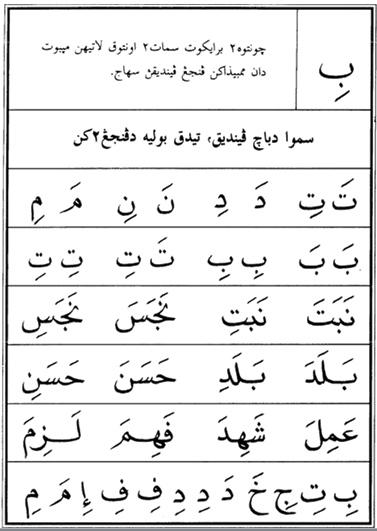 بِ
چونتوه٢ برايكوت سمات٢ اونتوق لاتيهن مڽبوت
دان ممبيذاكن ڤنجڠ ڤينديقڽ سهاج.
سموا دباچ ڤينديق، تيدق بوليه دڤنجڠ٢كن
تَ تِ دَ دِ نَ نِ مَ مِ
بَ بَ بِ بِ تَ تَ تِ تِ
نَبَتَ نَبَتِ نَجَسَ نَجَسِ
بَلَدَ بَلَدِ حَسَنَ حَسَنِ
عَمِلَ شَهِدَ فَهِمَ لَزِمَ
بِ تِ جِ خَ دَ دِ دِ فِ فِ إِ مَ مِ